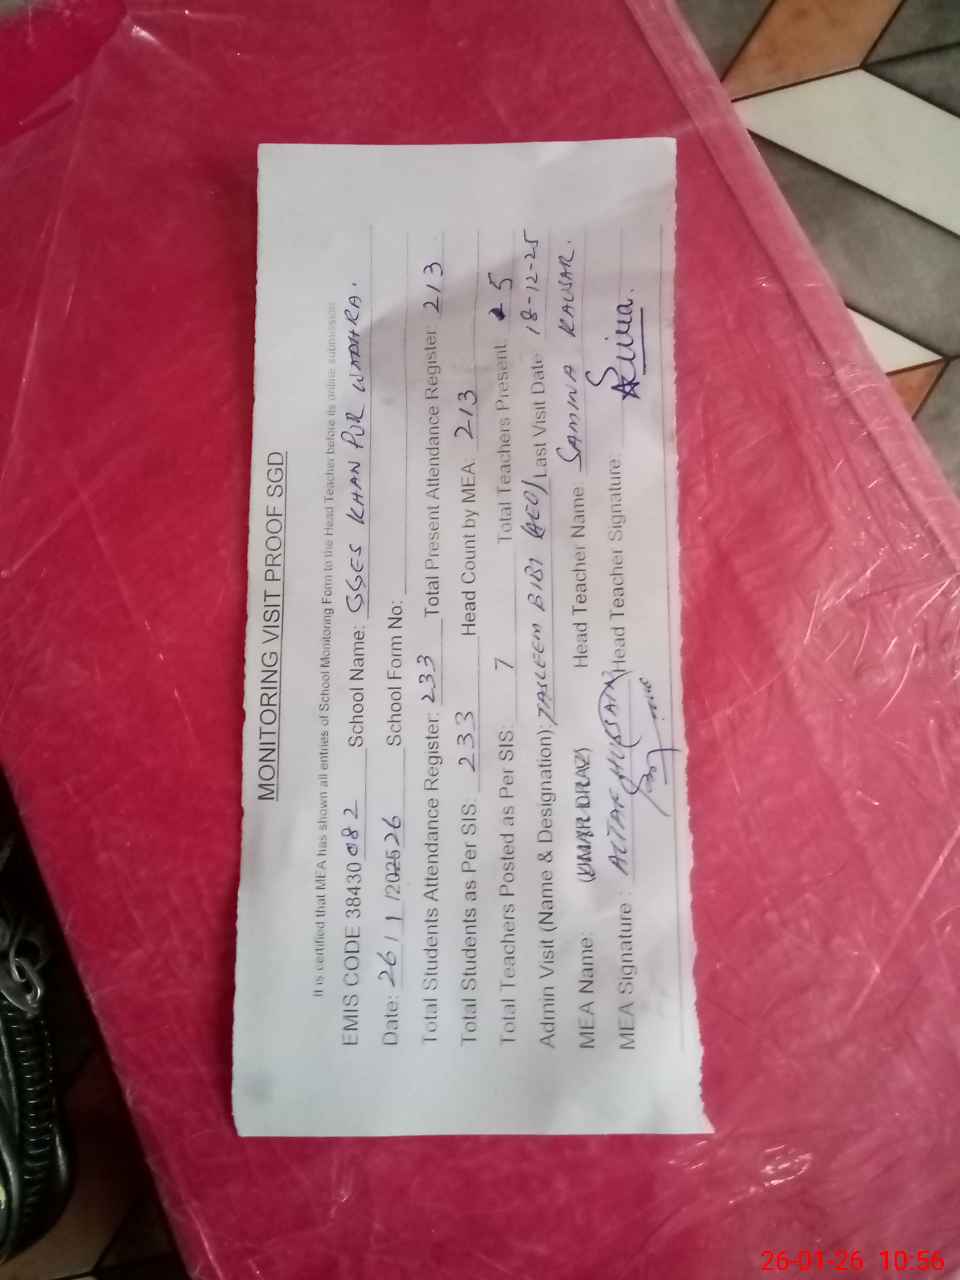 MONITORING VISIT PROOF SGD
It is certified that MEA has shown all entries of School Monitoring Form to the Head Teacher before its online submission
EMIS CODE 38430082 School Name: GGES KHAN PUR WADHRA.
Date: 26/1/202526 School Form No:
Total Students Attendance Register: 233 Total Present Attendance Register: 213
Total Students as Per SIS: 233 Head Count by MEA: 213
Total Teachers Posted as Per SIS: 7 Total Teachers Present 5
Admin Visit (Name & Designation): TASLEEM BIBI (AEO) Last Visit Date 18-12-25
MEA Name: (UMAR DRAZ) Head Teacher Name: SAMINA KAUSAR.
MEA Signature: ALTAF HUSSAIN Head Teacher Signature:
26-01-26 10:56